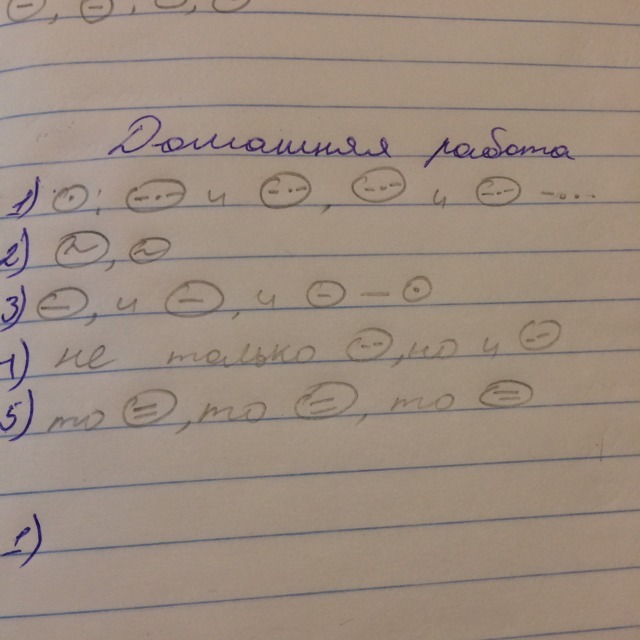 Домашняя работа
1) : и , и - ...
2) ,
3) , и , и —
4) не только , но и
5) то , то , то
1)